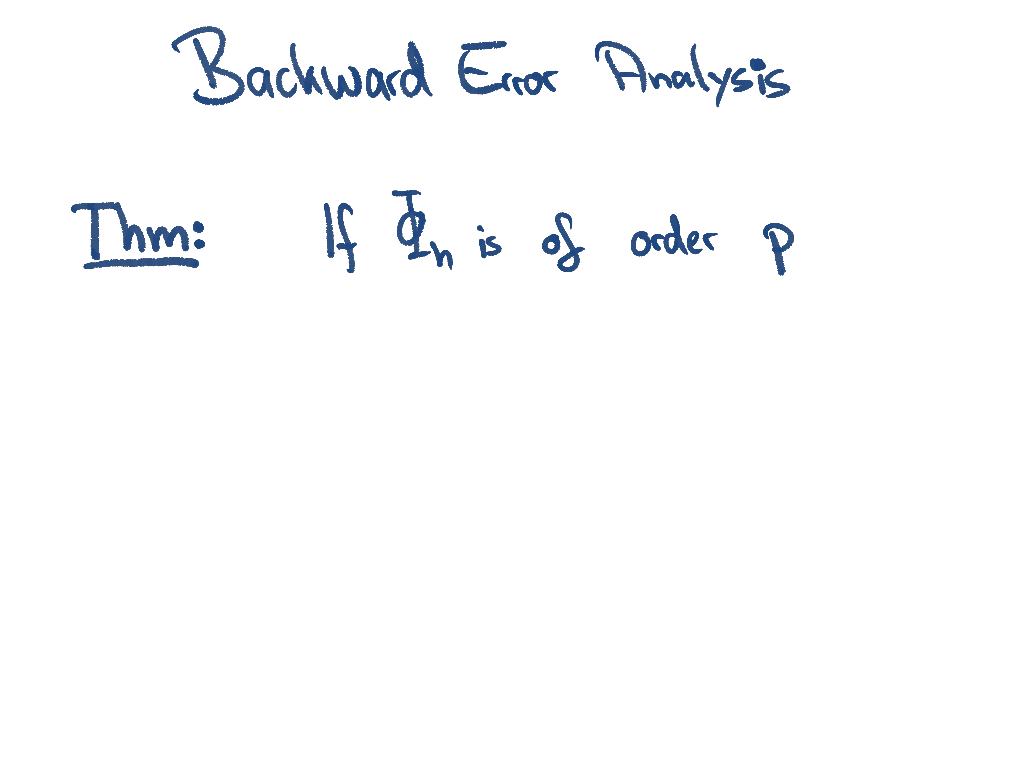 Backward Error Analysis
Thm: If Φₕ is of order p